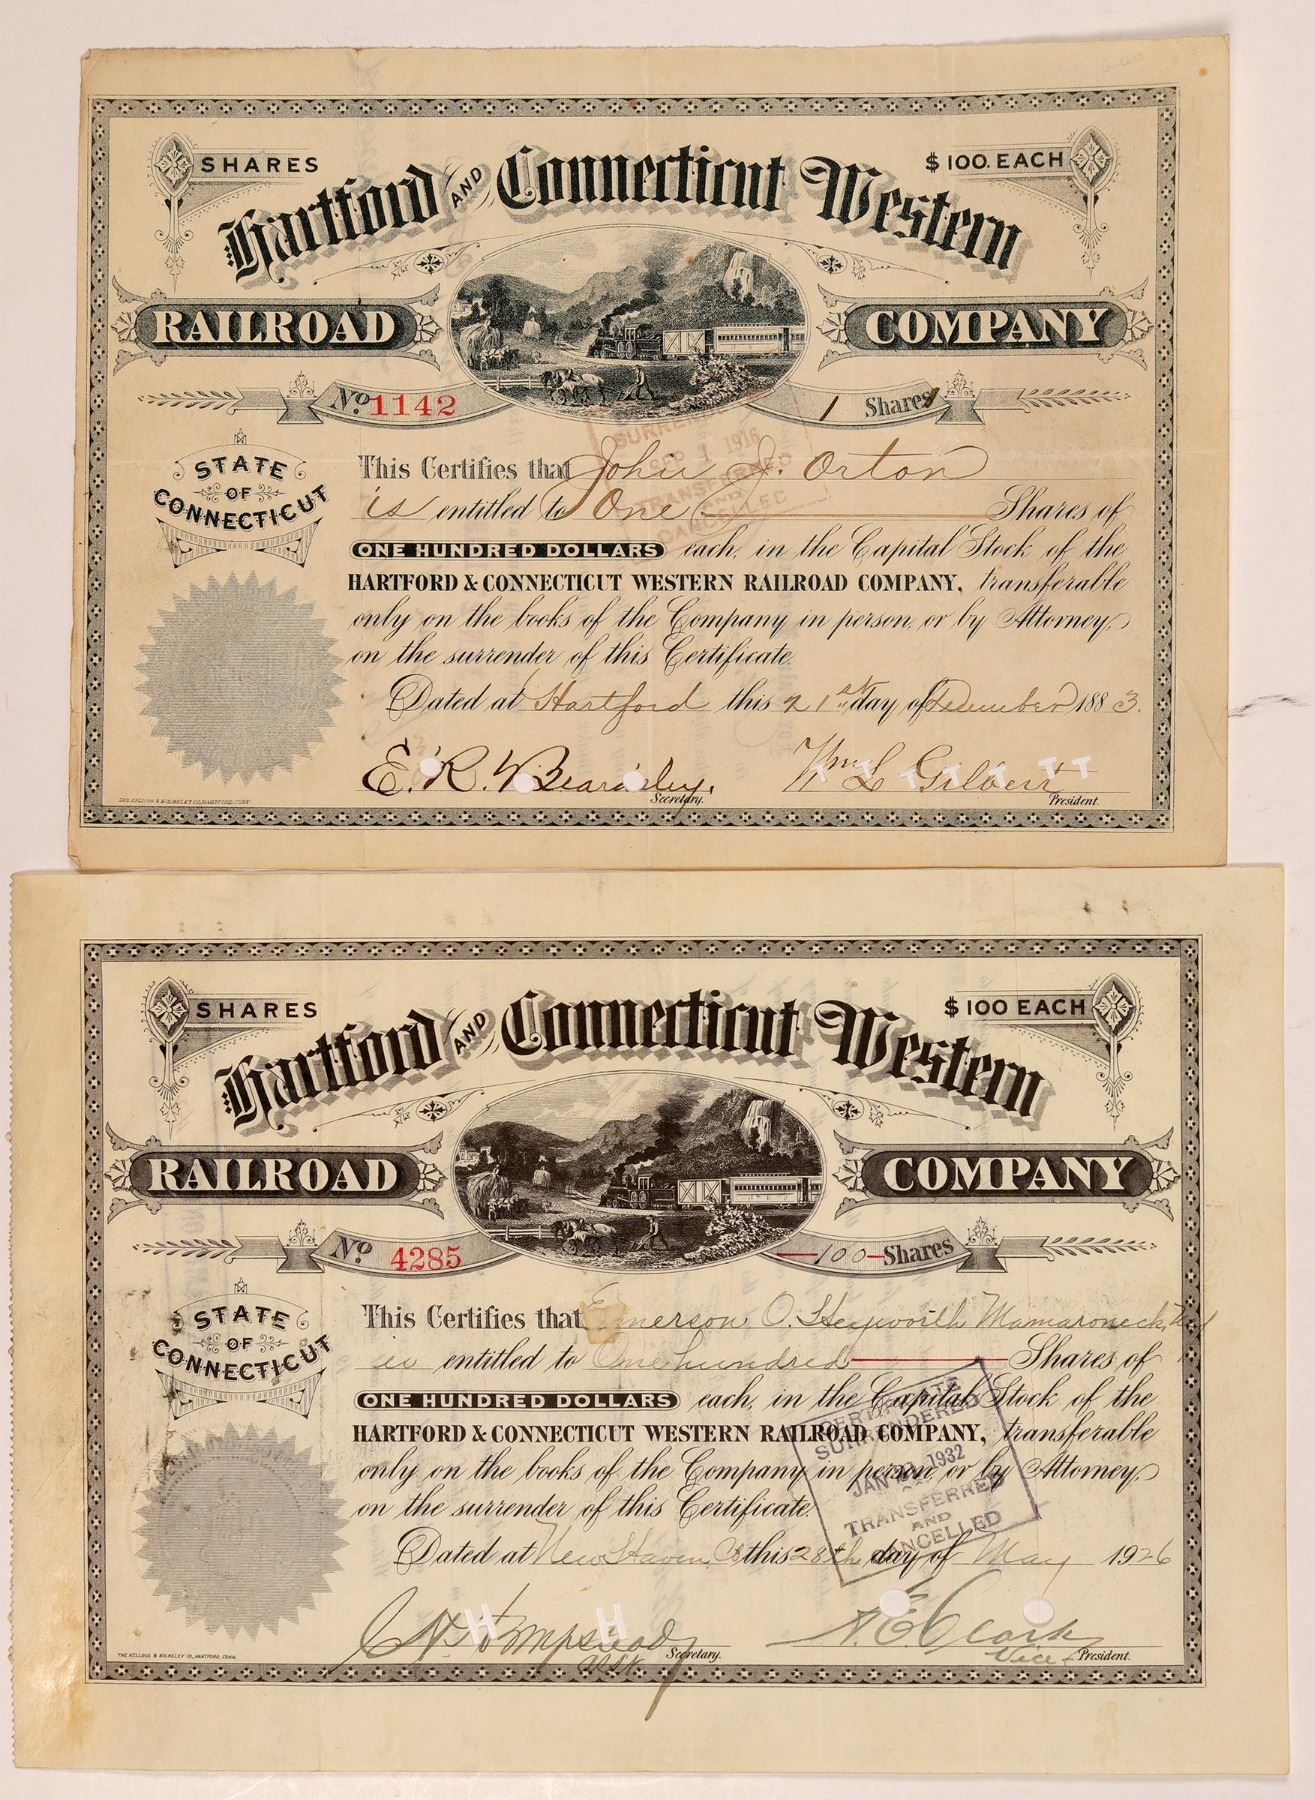 SHARES
$100. EACH
Hartford AND Connecticut Western
RAILROAD COMPANY
No. 1142
1 Shares
STATE OF CONNECTICUT
This Certifies that John J. Orton
is entitled to One Shares of
ONE HUNDRED DOLLARS each, in the Capital Stock of the
HARTFORD & CONNECTICUT WESTERN RAILROAD COMPANY, transferable
only on the books of the Company in person, or by Attorney,
on the surrender of this Certificate.
Dated at Hartford this 21st day of December 1883.
E. R. Beardsley, Secretary.
Wm L Gilbert President.
THE KELLOGG & BULKELEY CO, HARTFORD, CONN
1 1916
TRANSFERRED
AND
CANCELLED
SHARES
$100 EACH
Hartford AND Connecticut Western
RAILROAD COMPANY
No 4285
—100— Shares
STATE OF CONNECTICUT
This Certifies that Emerson O. Heyworth Mamaroneck,
is entitled to One hundred Shares of
ONE HUNDRED DOLLARS each, in the Capital Stock of the
HARTFORD & CONNECTICUT WESTERN RAILROAD COMPANY, transferable
only on the books of the Company in person, or by Attorney,
on the surrender of this Certificate.
Dated at New Haven, this 28th day of May 1926
Secretary.
A. E. Clark
Vice President.
THE KELLOGG & BULKELEY CO., HARTFORD, CONN.
SURRENDERED
JAN 1932
TRANSFERRED
AND
CANCELLED